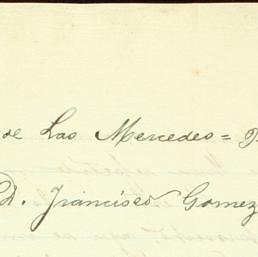 de Las Mercedes=
D. Francisco Gomez